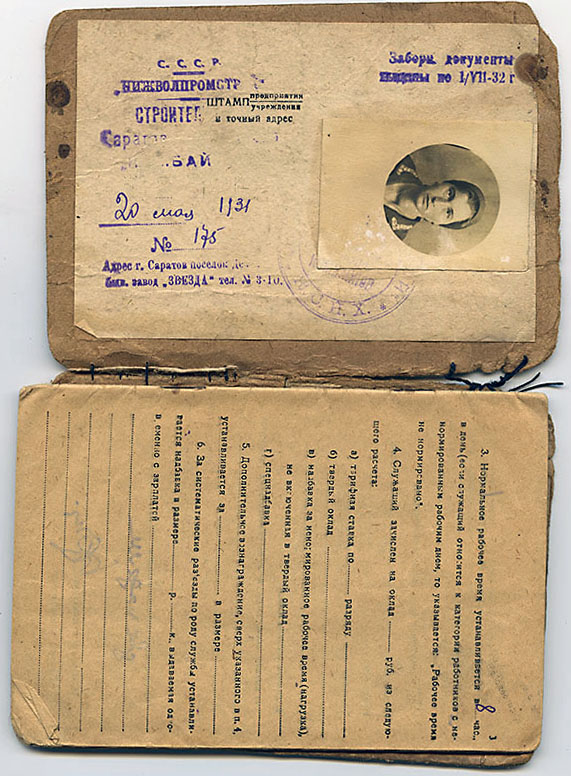 С. С. С. Р.
„НИЖВОЛПРОМСТР
СТРОИТЕЛ
Саратов
БАЙ
ШТАМП предприятия
учреждения
и точный адрес
Заборн. документы
по 1/VII-32 г
20 мая 1931
№ 175
Адрес г. Саратов поселок
бывш. завод „ЗВЕЗДА" тел. № 3-10.
С. Н. Х.
3
3. Нормальное рабочее время устанавливается в 8 час.,
в день (если служащий относится к категории работников с не-
нормированным рабочим днем, то указывается: „Рабочее время
не нормировано".
4. Служащий зачислен на оклад руб. из следую-
щего расчета:
а) тарифная ставка по разряду
б) твердый оклад
в) надбавка за ненормированное рабочее время (нагрузка),
не включенная в твердый оклад
г) спецнадбавка
5. Дополнительное вознаграждение, сверх указанного в п. 4,
устанавливается за в размере
6. За систематические раз'езды по роду службы устанавли-
вается надбавка в размере р. к., выдаваемая одно-
временно с зарплатой